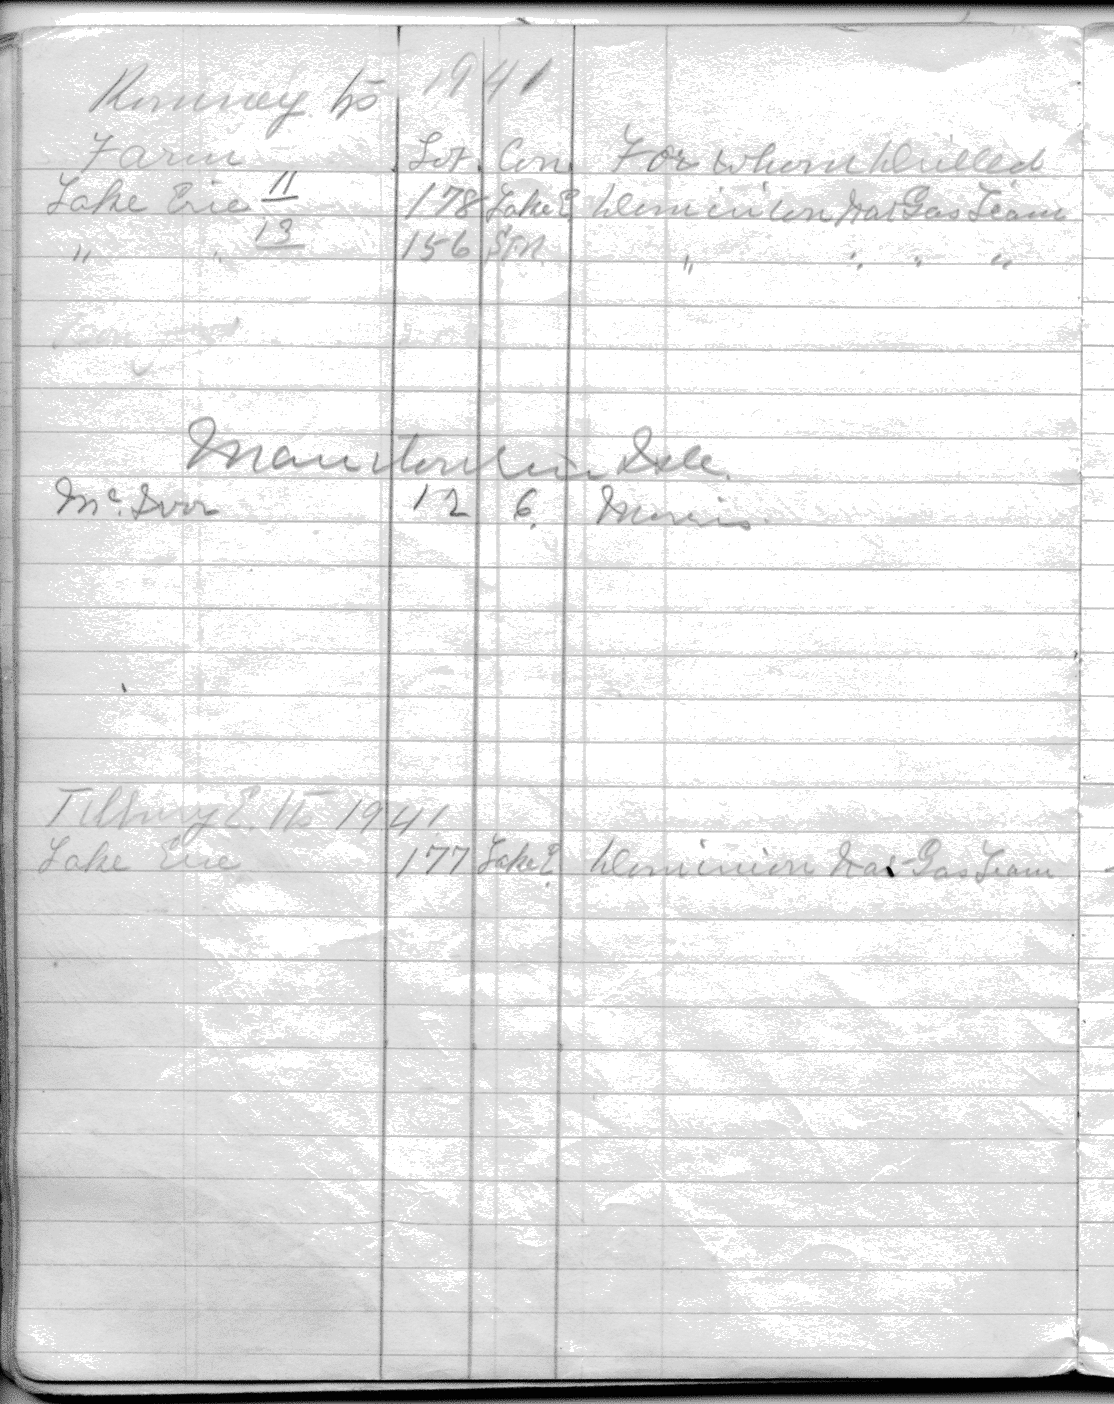 Romney Tp 1941
Farm Lot. Con. For whom Drilled
Lake Erie 11 178 Lake E Dominion Nat Gas Team
" " 13 156 STR. " " " "
Manitoulin Isle.
Mc. Ivor 12 6. Morris
Tilbury E. Tp 1941
Lake Erie 177 Lake E. Dominion Nat Gas Team